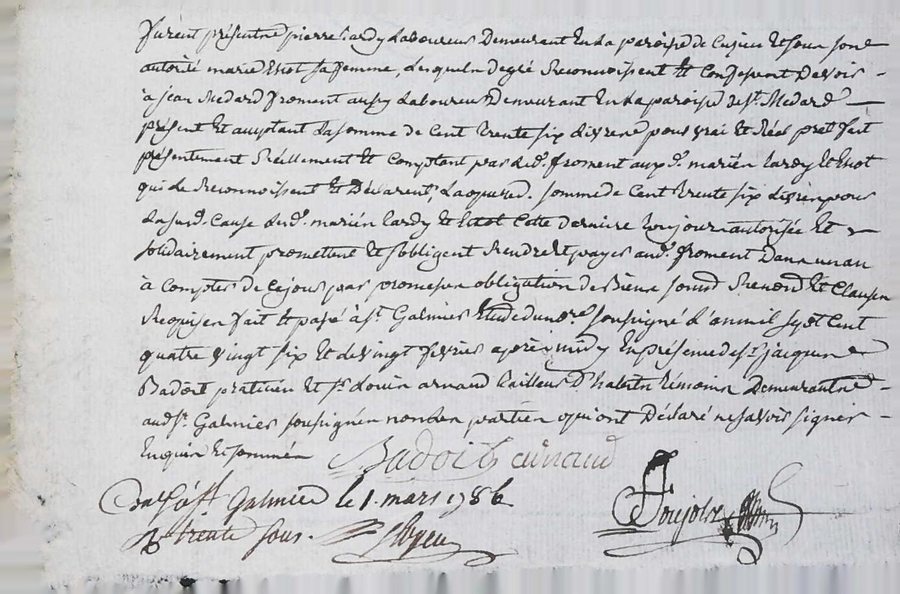 furent présents pierre Lardy Laboureur Demeurant En La paroisse de Cuzieu Et sous son
autorité marie Viot sa femme, Lesquels De gré Reconnoissent Et Confessent Devoir
à jean Medard froment aussy Laboureur Demeurant En La paroisse de St. Medard
présent Et acceptant La somme de Cent trente six Livres pour vrai Et Réel prêt fait
présentement Réellement Et Comptant par led. froment auxd. mariés Lardy Et Viot
qui Le Reconnoissent Et Déclarent, Laquelle d. somme de Cent trente six Livres pour
La susd. Cause Lesd. mariés Lardy Et Viot Cette derniere toujours autorisée Et
solidairement promettent Et s'obligent Rendre Et payer aud. froment Dans un an
à Compter de Ce jour par promesses obligation de Biens soumis. Renond. Et Clauses
Requises fait Et passé à St. Galmier Etude du nore. soussigné L'an mil sept Cent
quatre vingt six Et Le vingt fevrier après midy En présence de sr. jacques
Badoit praticien Et sr. Louis arnaud tailleur D'habits témoins Demeurants
aud. St. Galmier soussignés non Les parties qui ont Déclaré ne savoir signer
Enquis Et sommés
Badoit arnaud
Con. à St. Galmier le 1. mars 1786
R. trente sous.